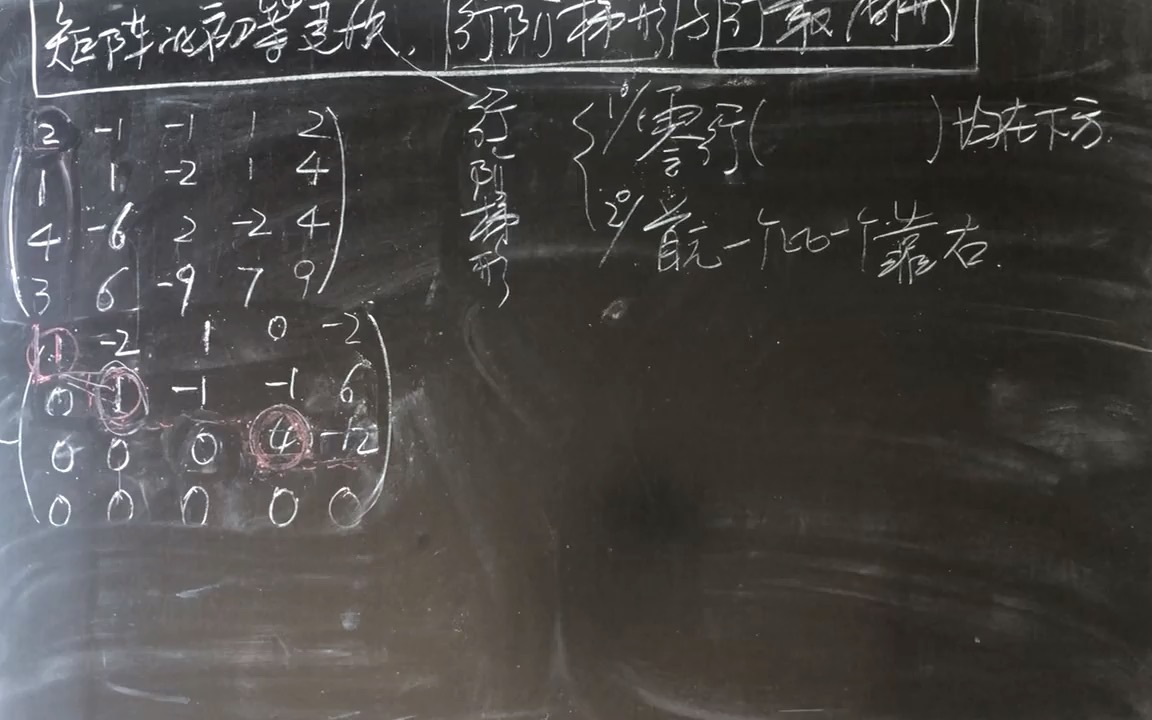 矩阵的初等变换, 行阶梯形与行最简形
2 -1 -1 1 2
1 1 -2 1 4
4 -6 2 -2 4
3 6 -9 7 9
1 -2 1 0 -2
0 1 -1 -1 6
0 0 0 4 -12
0 0 0 0 0
行阶梯形
1°/ 零行( )均在下方.
2°/ 首元一个比一个靠右.